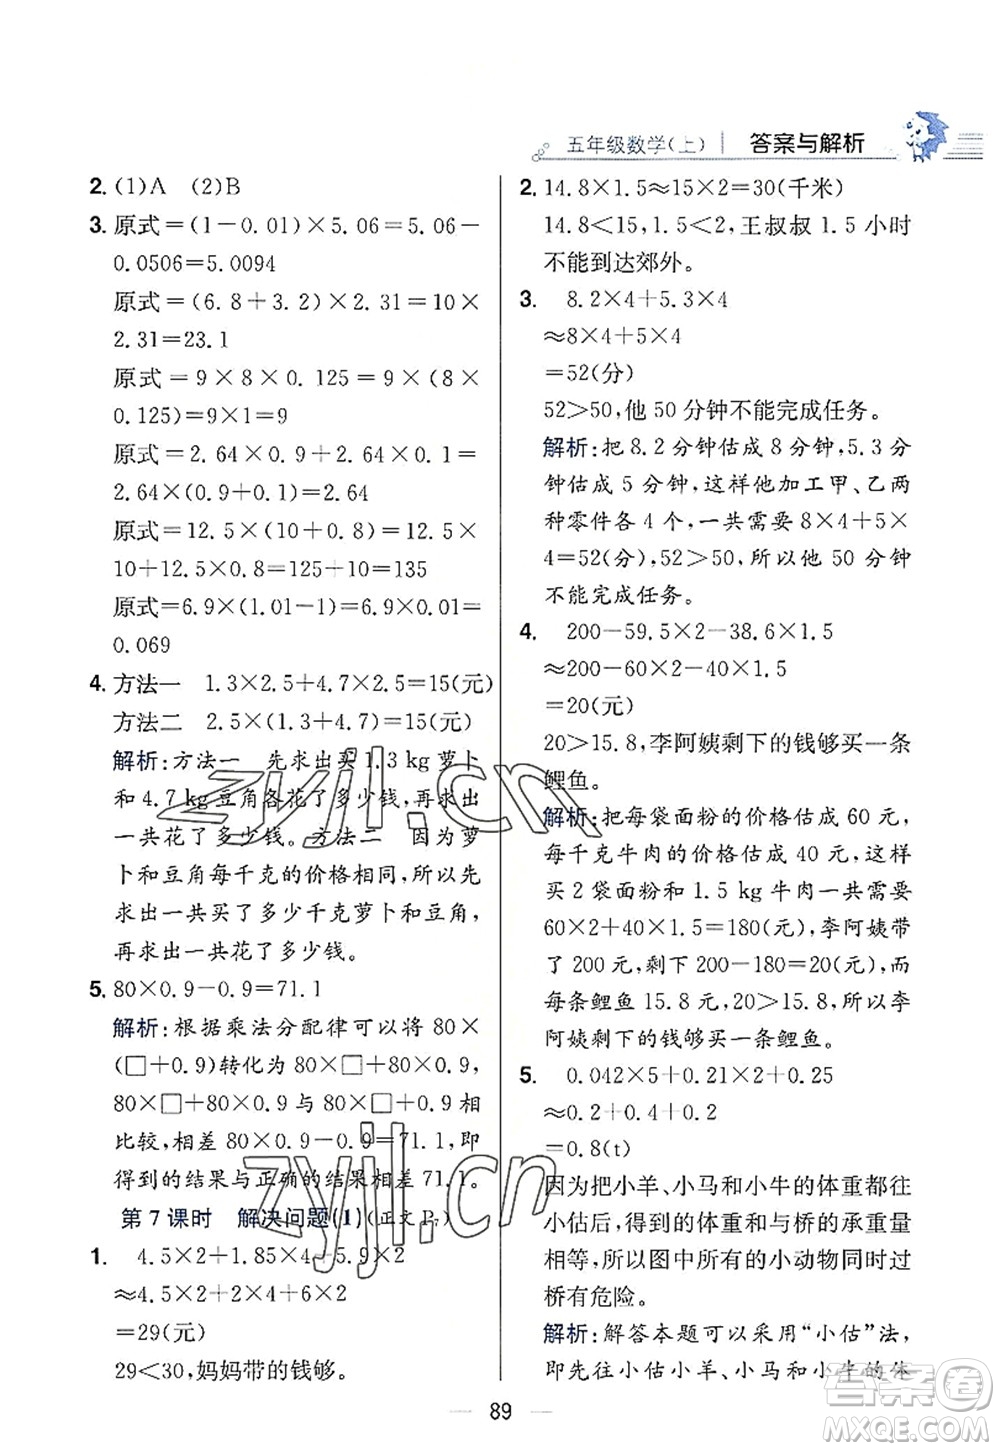 五年级数学(上) 答案与解析
2. (1)A (2)B
3. 原式=(1-0.01)×5.06=5.06-
0.0506=5.0094
原式=(6.8+3.2)×2.31=10×
2.31=23.1
原式=9×8×0.125=9×(8×
0.125)=9×1=9
原式=2.64×0.9+2.64×0.1=
2.64×(0.9+0.1)=2.64
原式=12.5×(10+0.8)=12.5×
10+12.5×0.8=125+10=135
原式=6.9×(1.01-1)=6.9×0.01=
0.069
4. 方法一 1.3×2.5+4.7×2.5=15(元)
方法二 2.5×(1.3+4.7)=15(元)
解析:方法一 先求出买1.3 kg萝卜
和4.7 kg豆角各花了多少钱,再求出
一共花了多少钱。方法二 因为萝
卜和豆角每千克的价格相同,所以先
求出一共买了多少千克萝卜和豆角,
再求出一共花了多少钱。
5. 80×0.9-0.9=71.1
解析:根据乘法分配律可以将80×
(□+0.9)转化为80×□+80×0.9,
80×□+80×0.9与80×□+0.9相
比较,相差80×0.9-0.9=71.1,即
得到的结果与正确的结果相差71.1。
第7课时 解决问题(1)(正文P7)
1. 4.5×2+1.85×4+5.9×2
≈4.5×2+2×4+6×2
=29(元)
29<30,妈妈带的钱够。
2. 14.8×1.5≈15×2=30(千米)
14.8<15,1.5<2,王叔叔1.5小时
不能到达郊外。
3. 8.2×4+5.3×4
≈8×4+5×4
=52(分)
52>50,他50分钟不能完成任务。
解析:把8.2分钟估成8分钟,5.3分
钟估成5分钟,这样他加工甲、乙两
种零件各4个,一共需要8×4+5×
4=52(分),52>50,所以他50分钟
不能完成任务。
4. 200-59.5×2-38.6×1.5
≈200-60×2-40×1.5
=20(元)
20>15.8,李阿姨剩下的钱够买一条
鲤鱼。
解析:把每袋面粉的价格估成60元,
每千克牛肉的价格估成40元,这样
买2袋面粉和1.5 kg牛肉一共需要
60×2+40×1.5=180(元),李阿姨带
了200元,剩下200-180=20(元),而
每条鲤鱼15.8元,20>15.8,所以李
阿姨剩下的钱够买一条鲤鱼。
5. 0.042×5+0.21×2+0.25
≈0.2+0.4+0.2
=0.8(t)
因为把小羊、小马和小牛的体重都往
小估后,得到的体重和与桥的承重量
相等,所以图中所有的小动物同时过
桥有危险。
解析:解答本题可以采用“小估”法,
即先往小估小羊、小马和小牛的体
89
zyjl.cn
zyjl.cn
答案圈
MXQE.COM